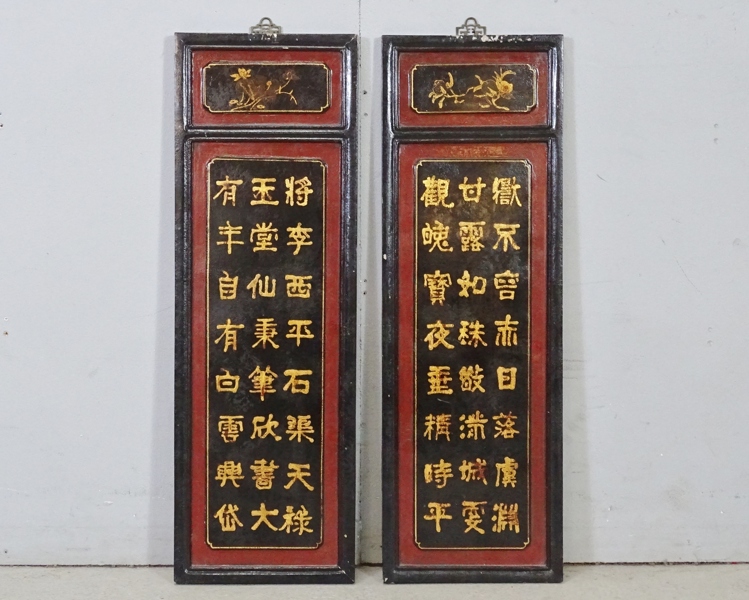 將李西平石渠天祿
玉堂仙秉筆欣書大
有年自有白雲興岱
嶽不容赤日落虞淵
甘露如珠散滿城
觀寶夜垂精時平